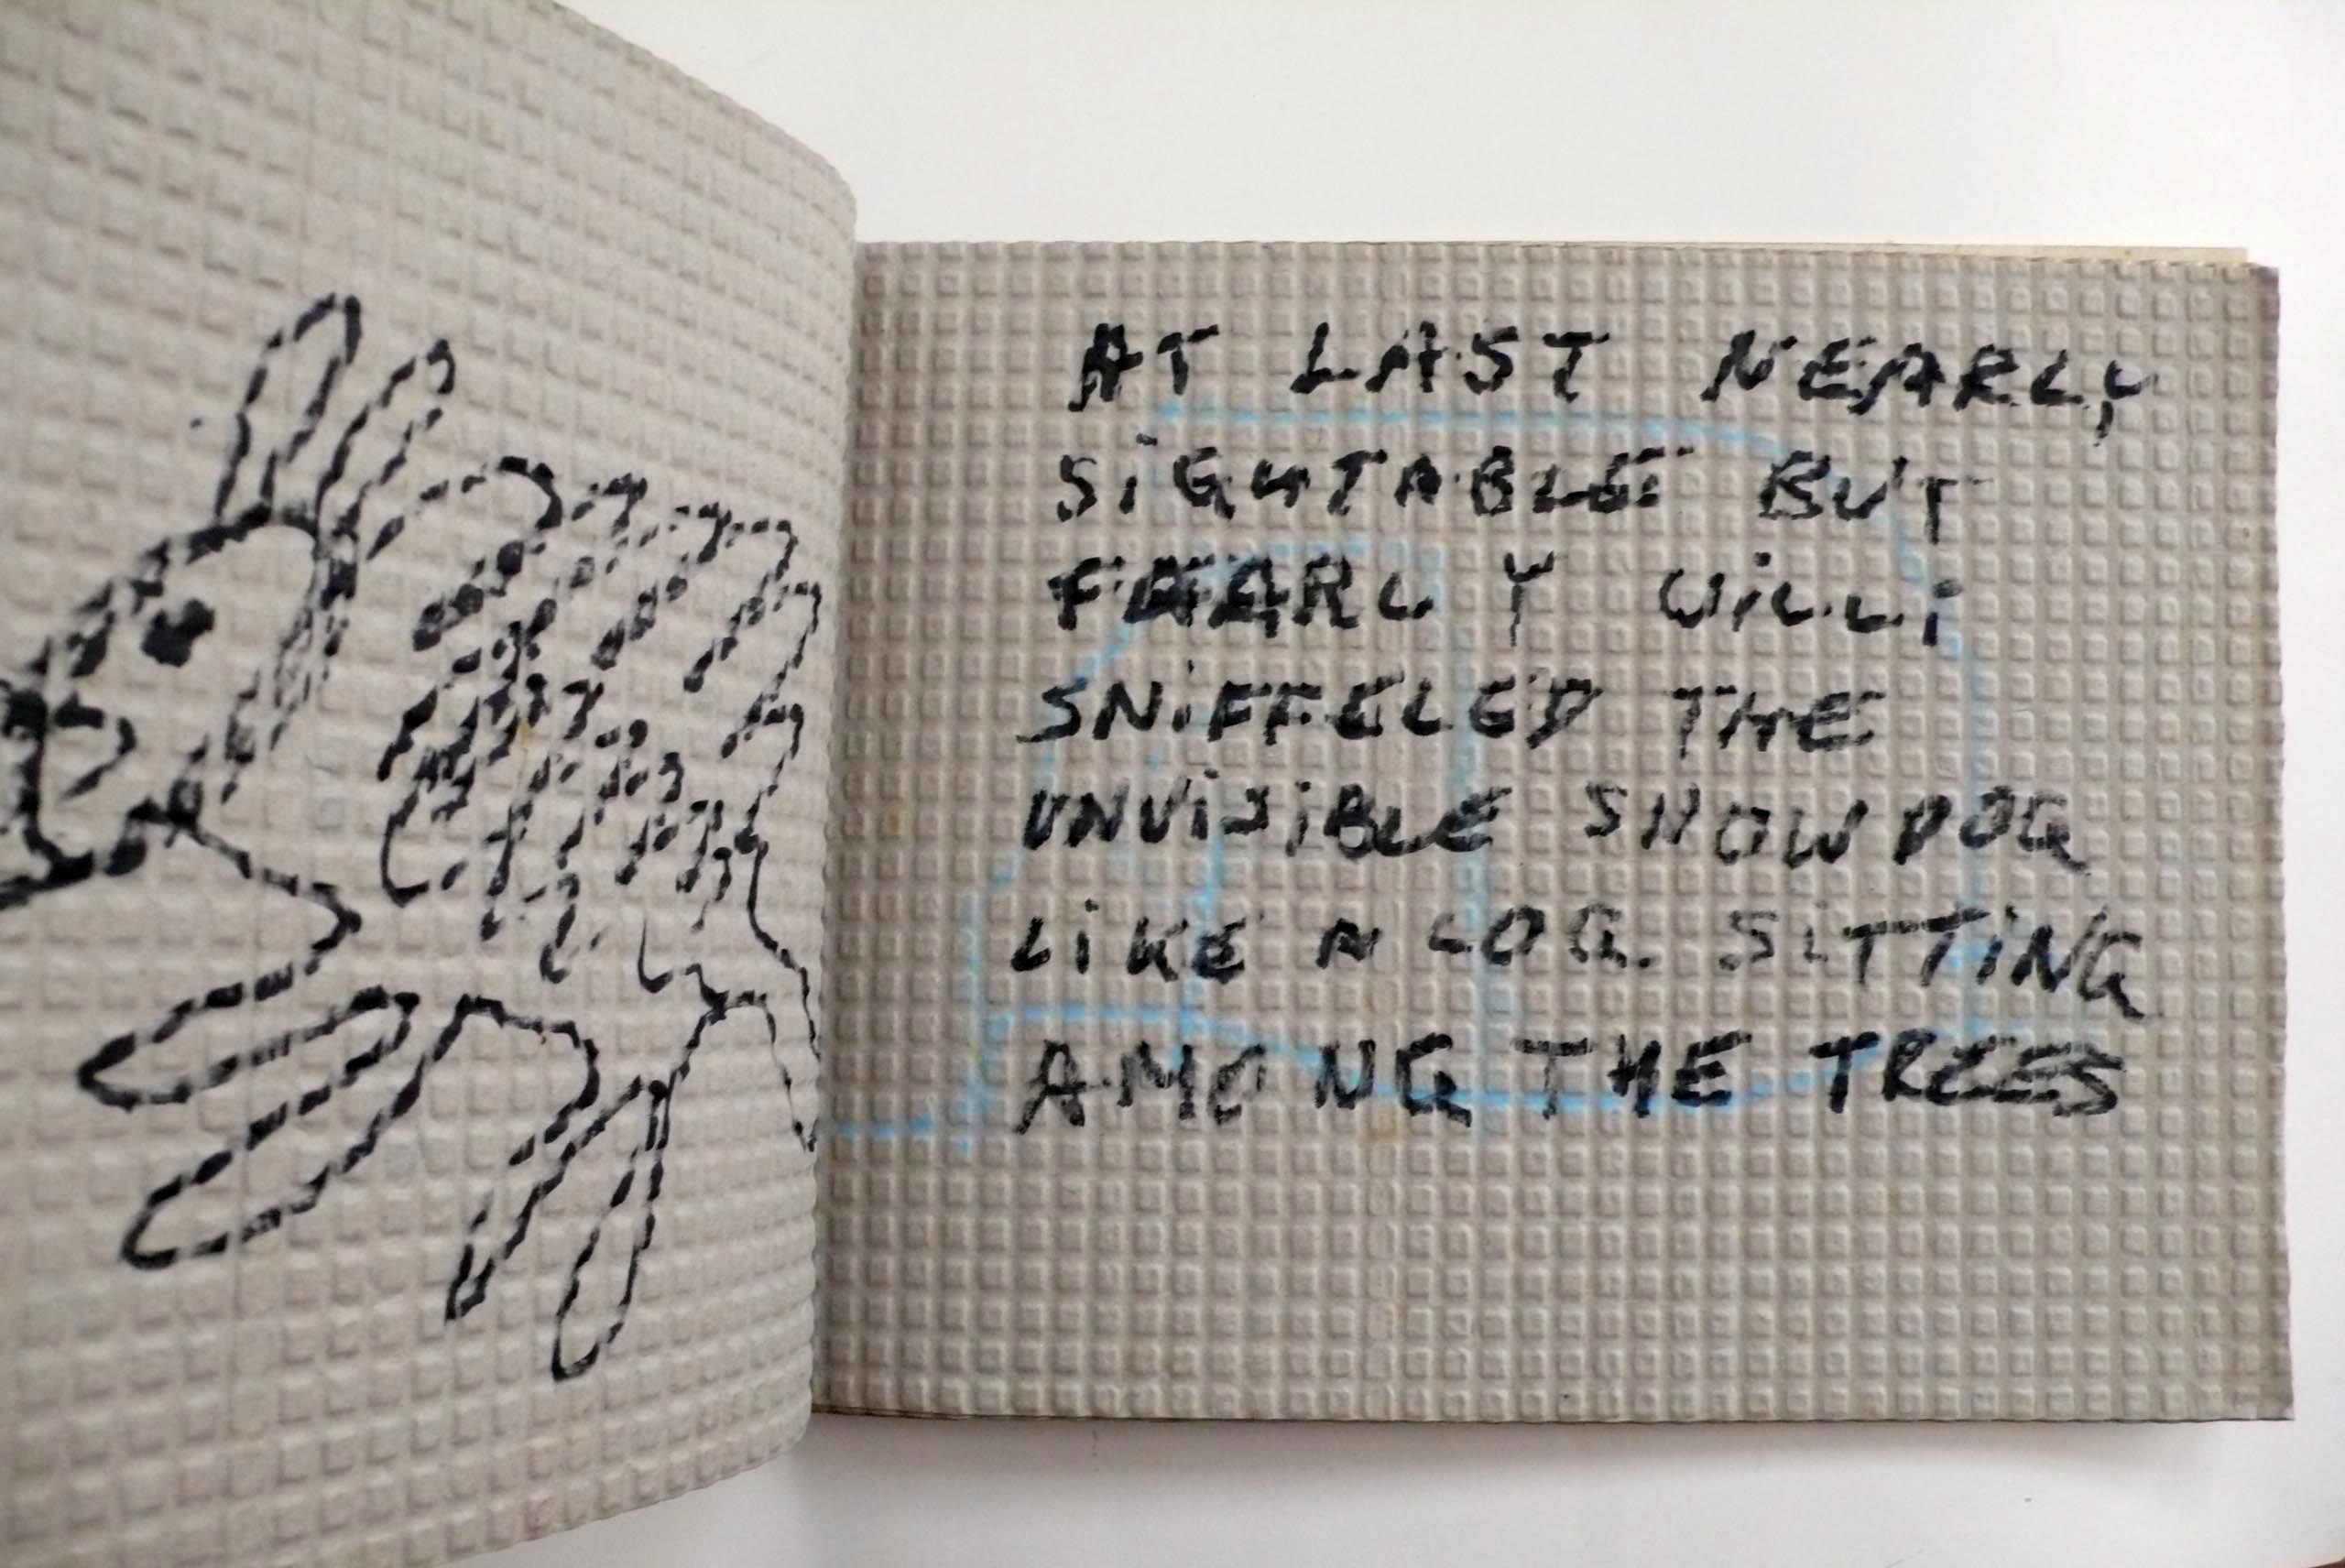 AT LAST NEARLY
SiGHTABLE BUT
FEARLY WiLLi
SNiFFELED THE
UNViSiBLE SHOWDOG
LiKE A LOG SiTTiNG
AMONG THE TREES